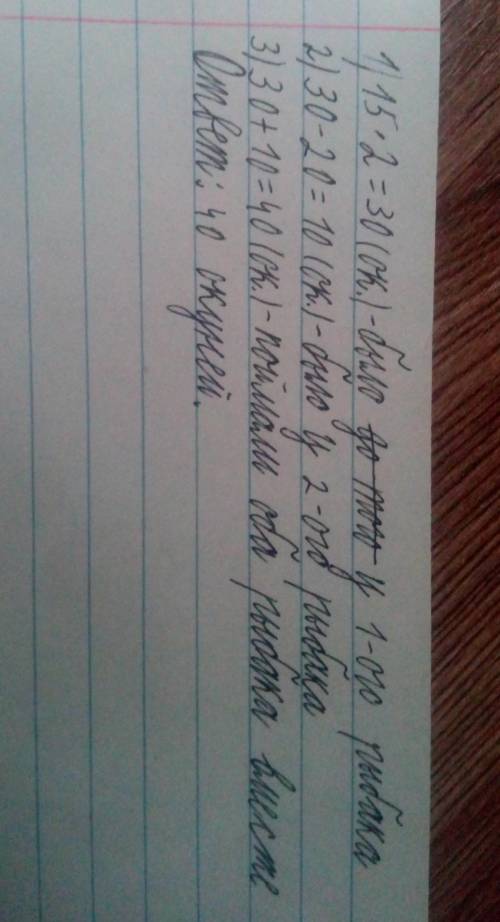 1) 15 · 2 = 30 (ок.) - было у 1-ого рыбака
2) 30 - 20 = 10 (ок.) - было у 2-ого рыбака
3) 30 + 10 = 40 (ок.) - поймали оба рыбака вместе
Ответ: 40 окуней.